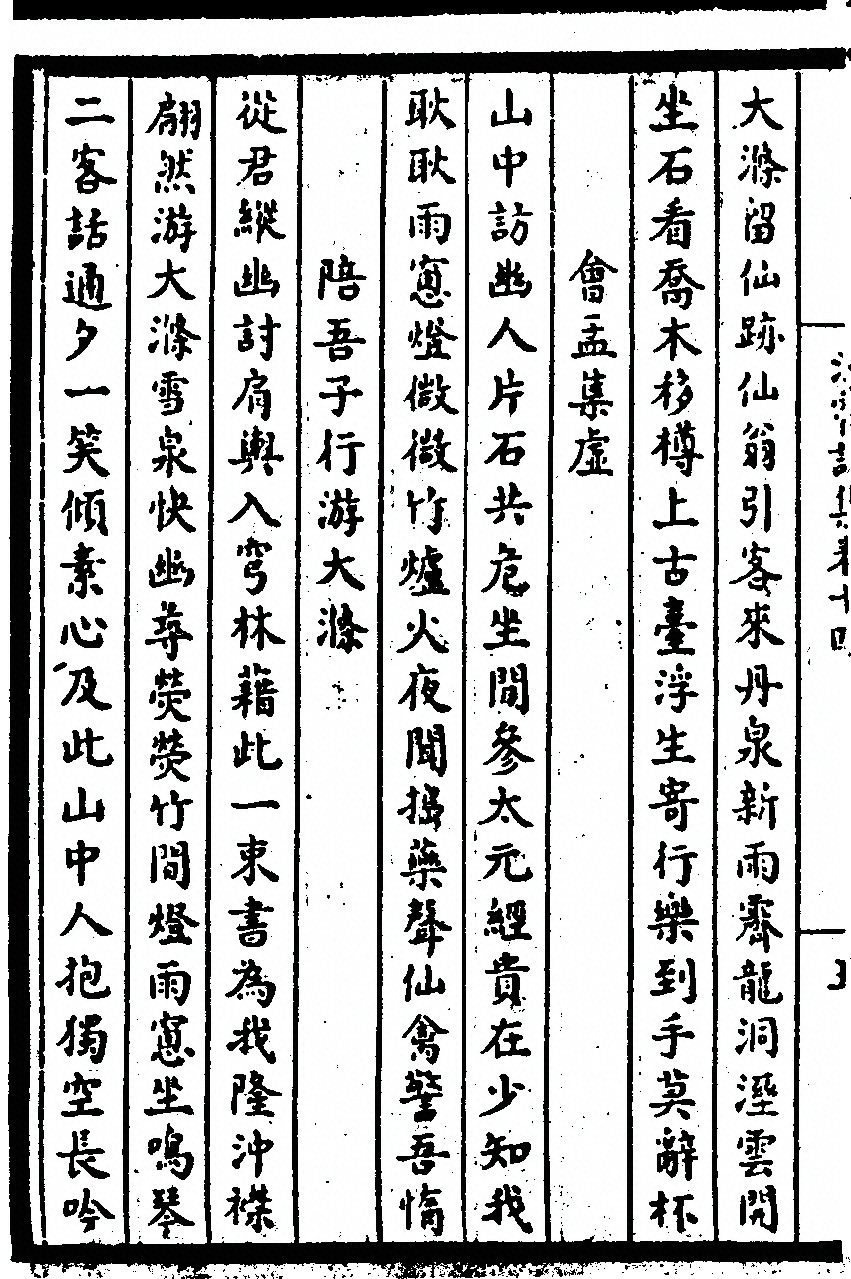 大滌留仙跡仙翁引客來丹泉新雨霽龍洞溼雲開
坐石看喬木移樽上古臺浮生寄行樂到手莫辭杯
會孟集虛
山中訪幽人片石共危坐間參太元經貴在少知我
耿耿雨窻燈微微竹爐火夜聞搗藥聲仙禽警吾惰
陪吾子行游大滌
從君縱幽討肩輿入穹林藉此一束書為我隆沖襟
翩然游大滌雪泉快幽尋熒熒竹間燈雨窻坐鳴琴
二客話通夕一笑傾素心及此山中人抱獨空長吟